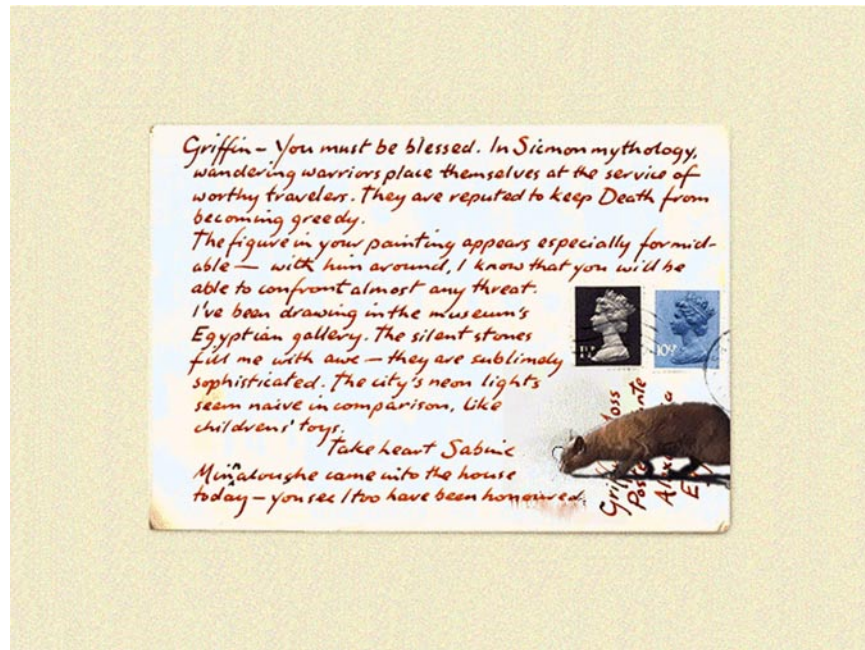 Griffin – You must be blessed. In Sicmon mythology,
wandering warriors place themselves at the service of
worthy travelers. They are reputed to keep Death from
becoming greedy.
The figure in your painting appears especially formid-
able – with him around, I know that you will be
able to confront almost any threat.
I've been drawing in the museum's
Egyptian gallery. The silent stones
fill me with awe – they are sublimely
sophisticated. The city's neon lights
seem naive in comparison, like
childrens' toys.
Take heart Sabine
Minnaloushe came into the house
today – you see I too have been honoured.
10½